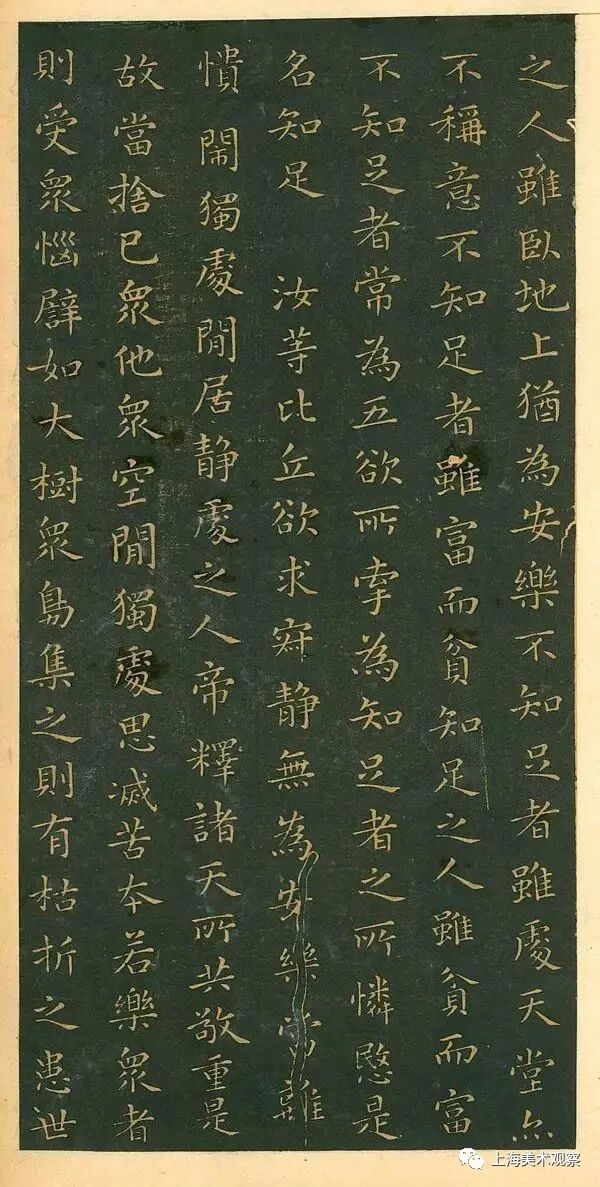 之人雖臥地上猶為安樂不知足者雖處天堂亦
不稱意不知足者雖富而貧知足之人雖貧而富
不知足者常為五欲所牽為知足者之所憐愍是
名知足　汝等比丘欲求寂靜無為安樂當離
憒閙獨處閒居靜處之人帝釋諸天所共敬重是
故當捨已衆他衆空閒獨處思滅苦本若樂衆者
則受衆惱譬如大樹衆鳥集之則有枯折之患世
上海美术观察